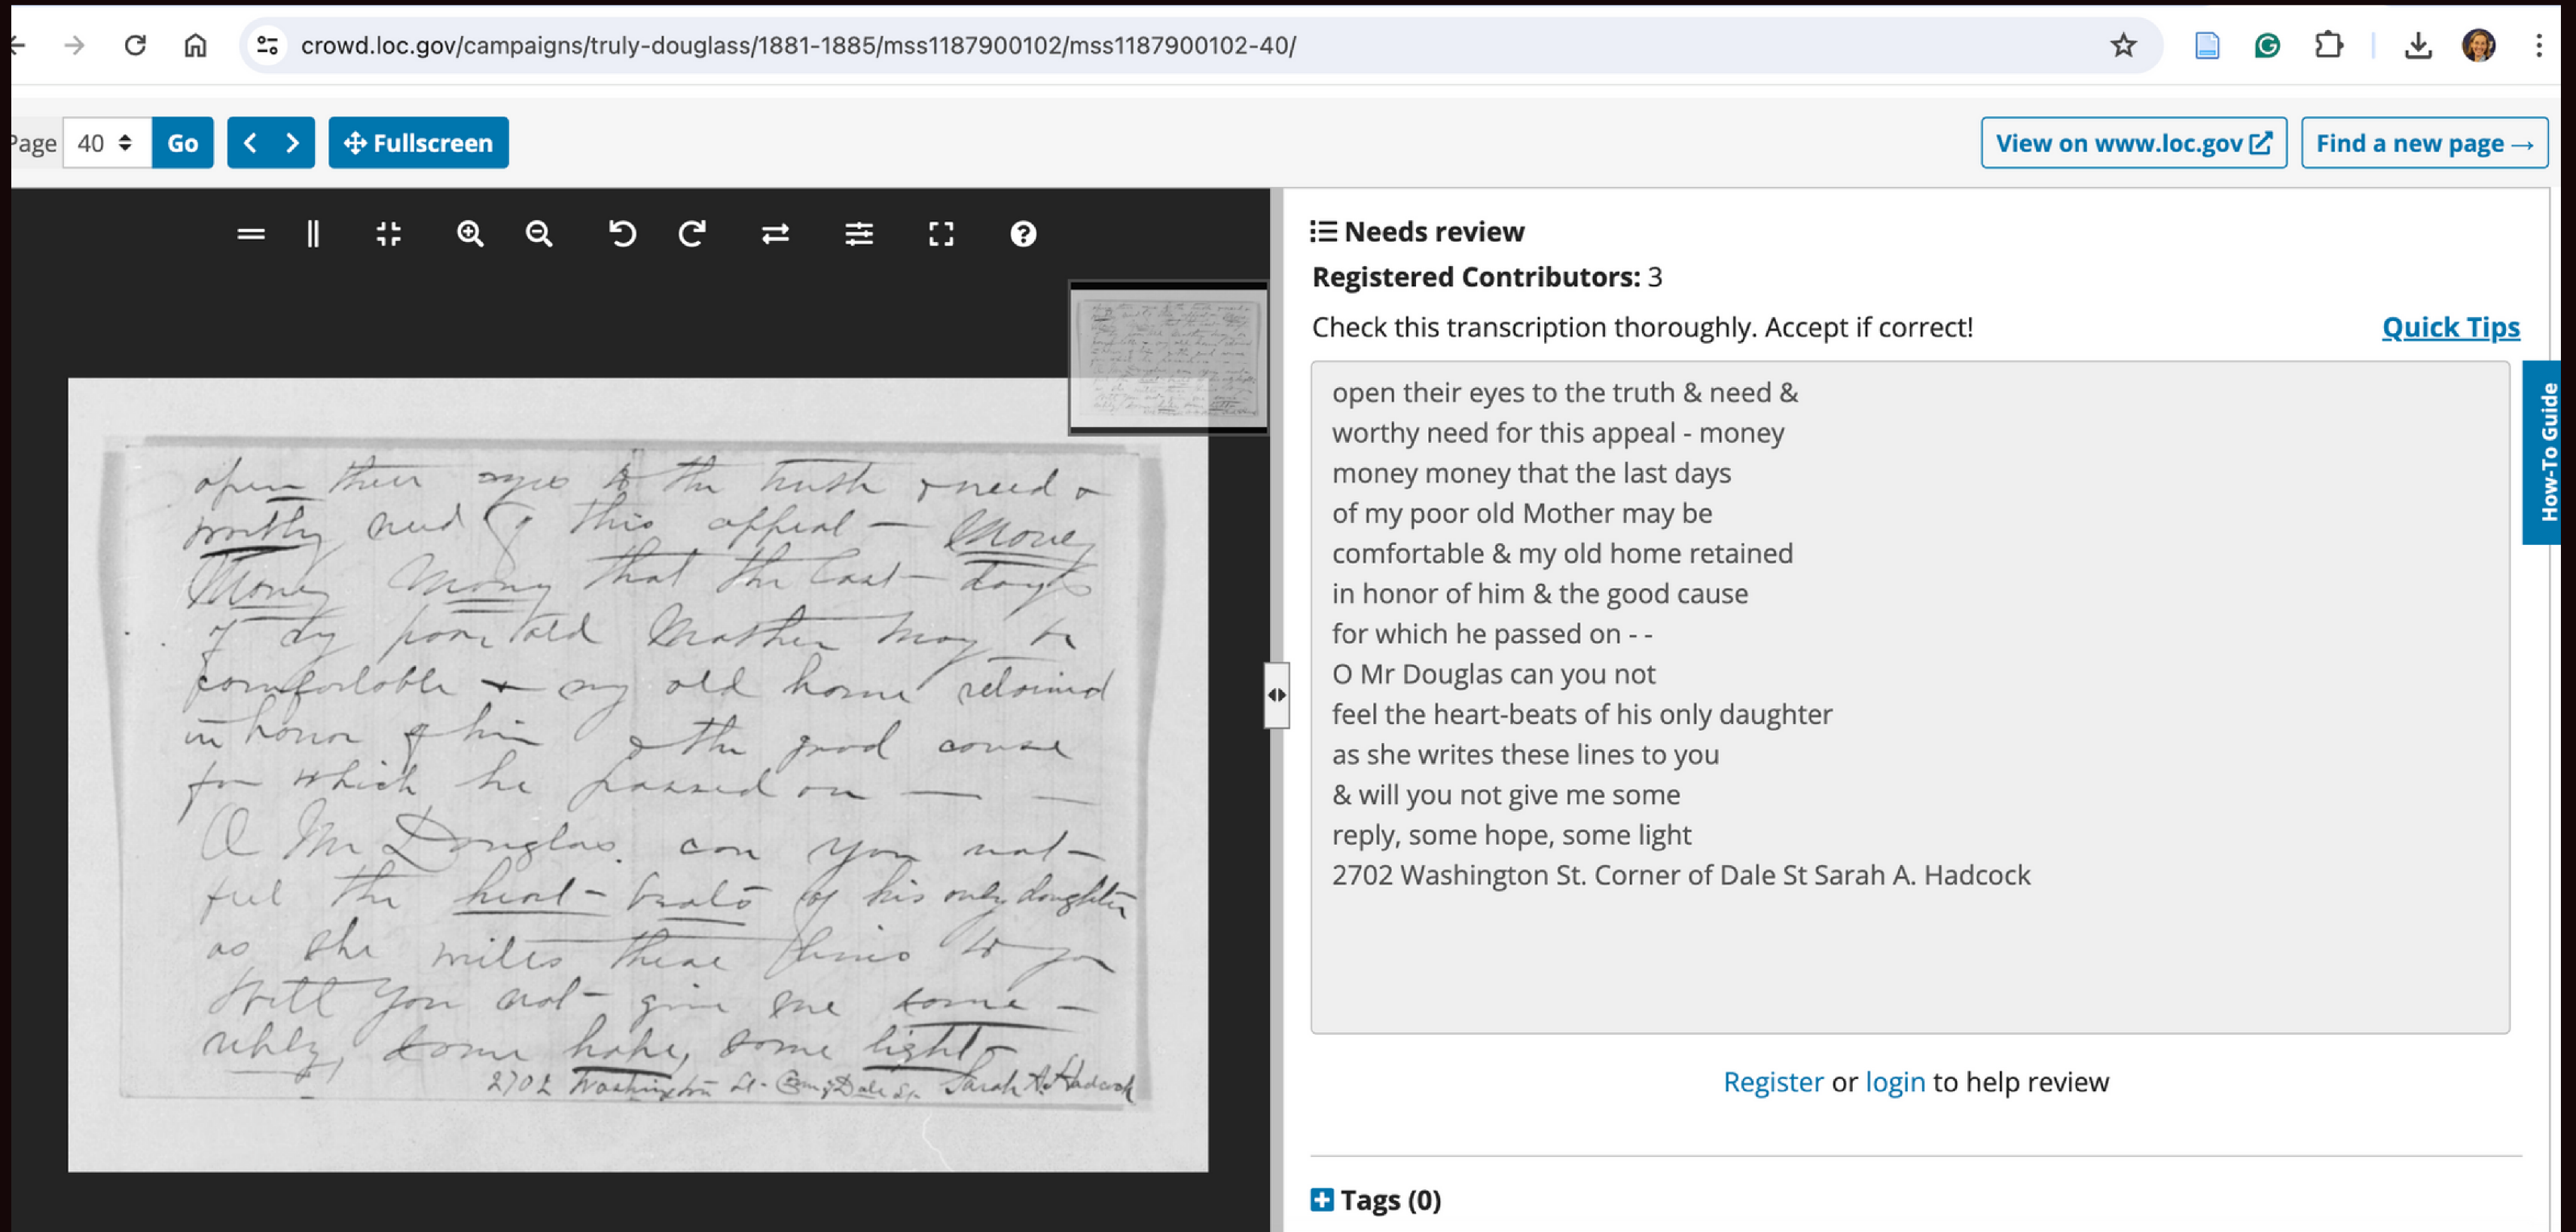 crowd.loc.gov/campaigns/truly-douglass/1881-1885/mss1187900102/mss1187900102-40/
Page 40 Go Fullscreen View on www.loc.gov Find a new page →
open their eyes to the truth & need &
worthy need of this appeal — Money
Money Money that the last days
of my poor old Mother may be
comfortable & my old home retained
in honor of him & the good cause
for which he passed on — —
O Mr Douglas. can you not
feel the heart-beats of his only daughter
as she writes these lines to you
Will you not give me some —
reply, some hope, some light —
2702 Washington St. Cor of Dale St. Sarah A. Hadcock
Needs review
Registered Contributors: 3
Check this transcription thoroughly. Accept if correct!
Quick Tips
open their eyes to the truth & need &
worthy need for this appeal - money
money money that the last days
of my poor old Mother may be
comfortable & my old home retained
in honor of him & the good cause
for which he passed on - -
O Mr Douglas can you not
feel the heart-beats of his only daughter
as she writes these lines to you
& will you not give me some
reply, some hope, some light
2702 Washington St. Corner of Dale St Sarah A. Hadcock
How-To Guide
Register or login to help review
Tags (0)